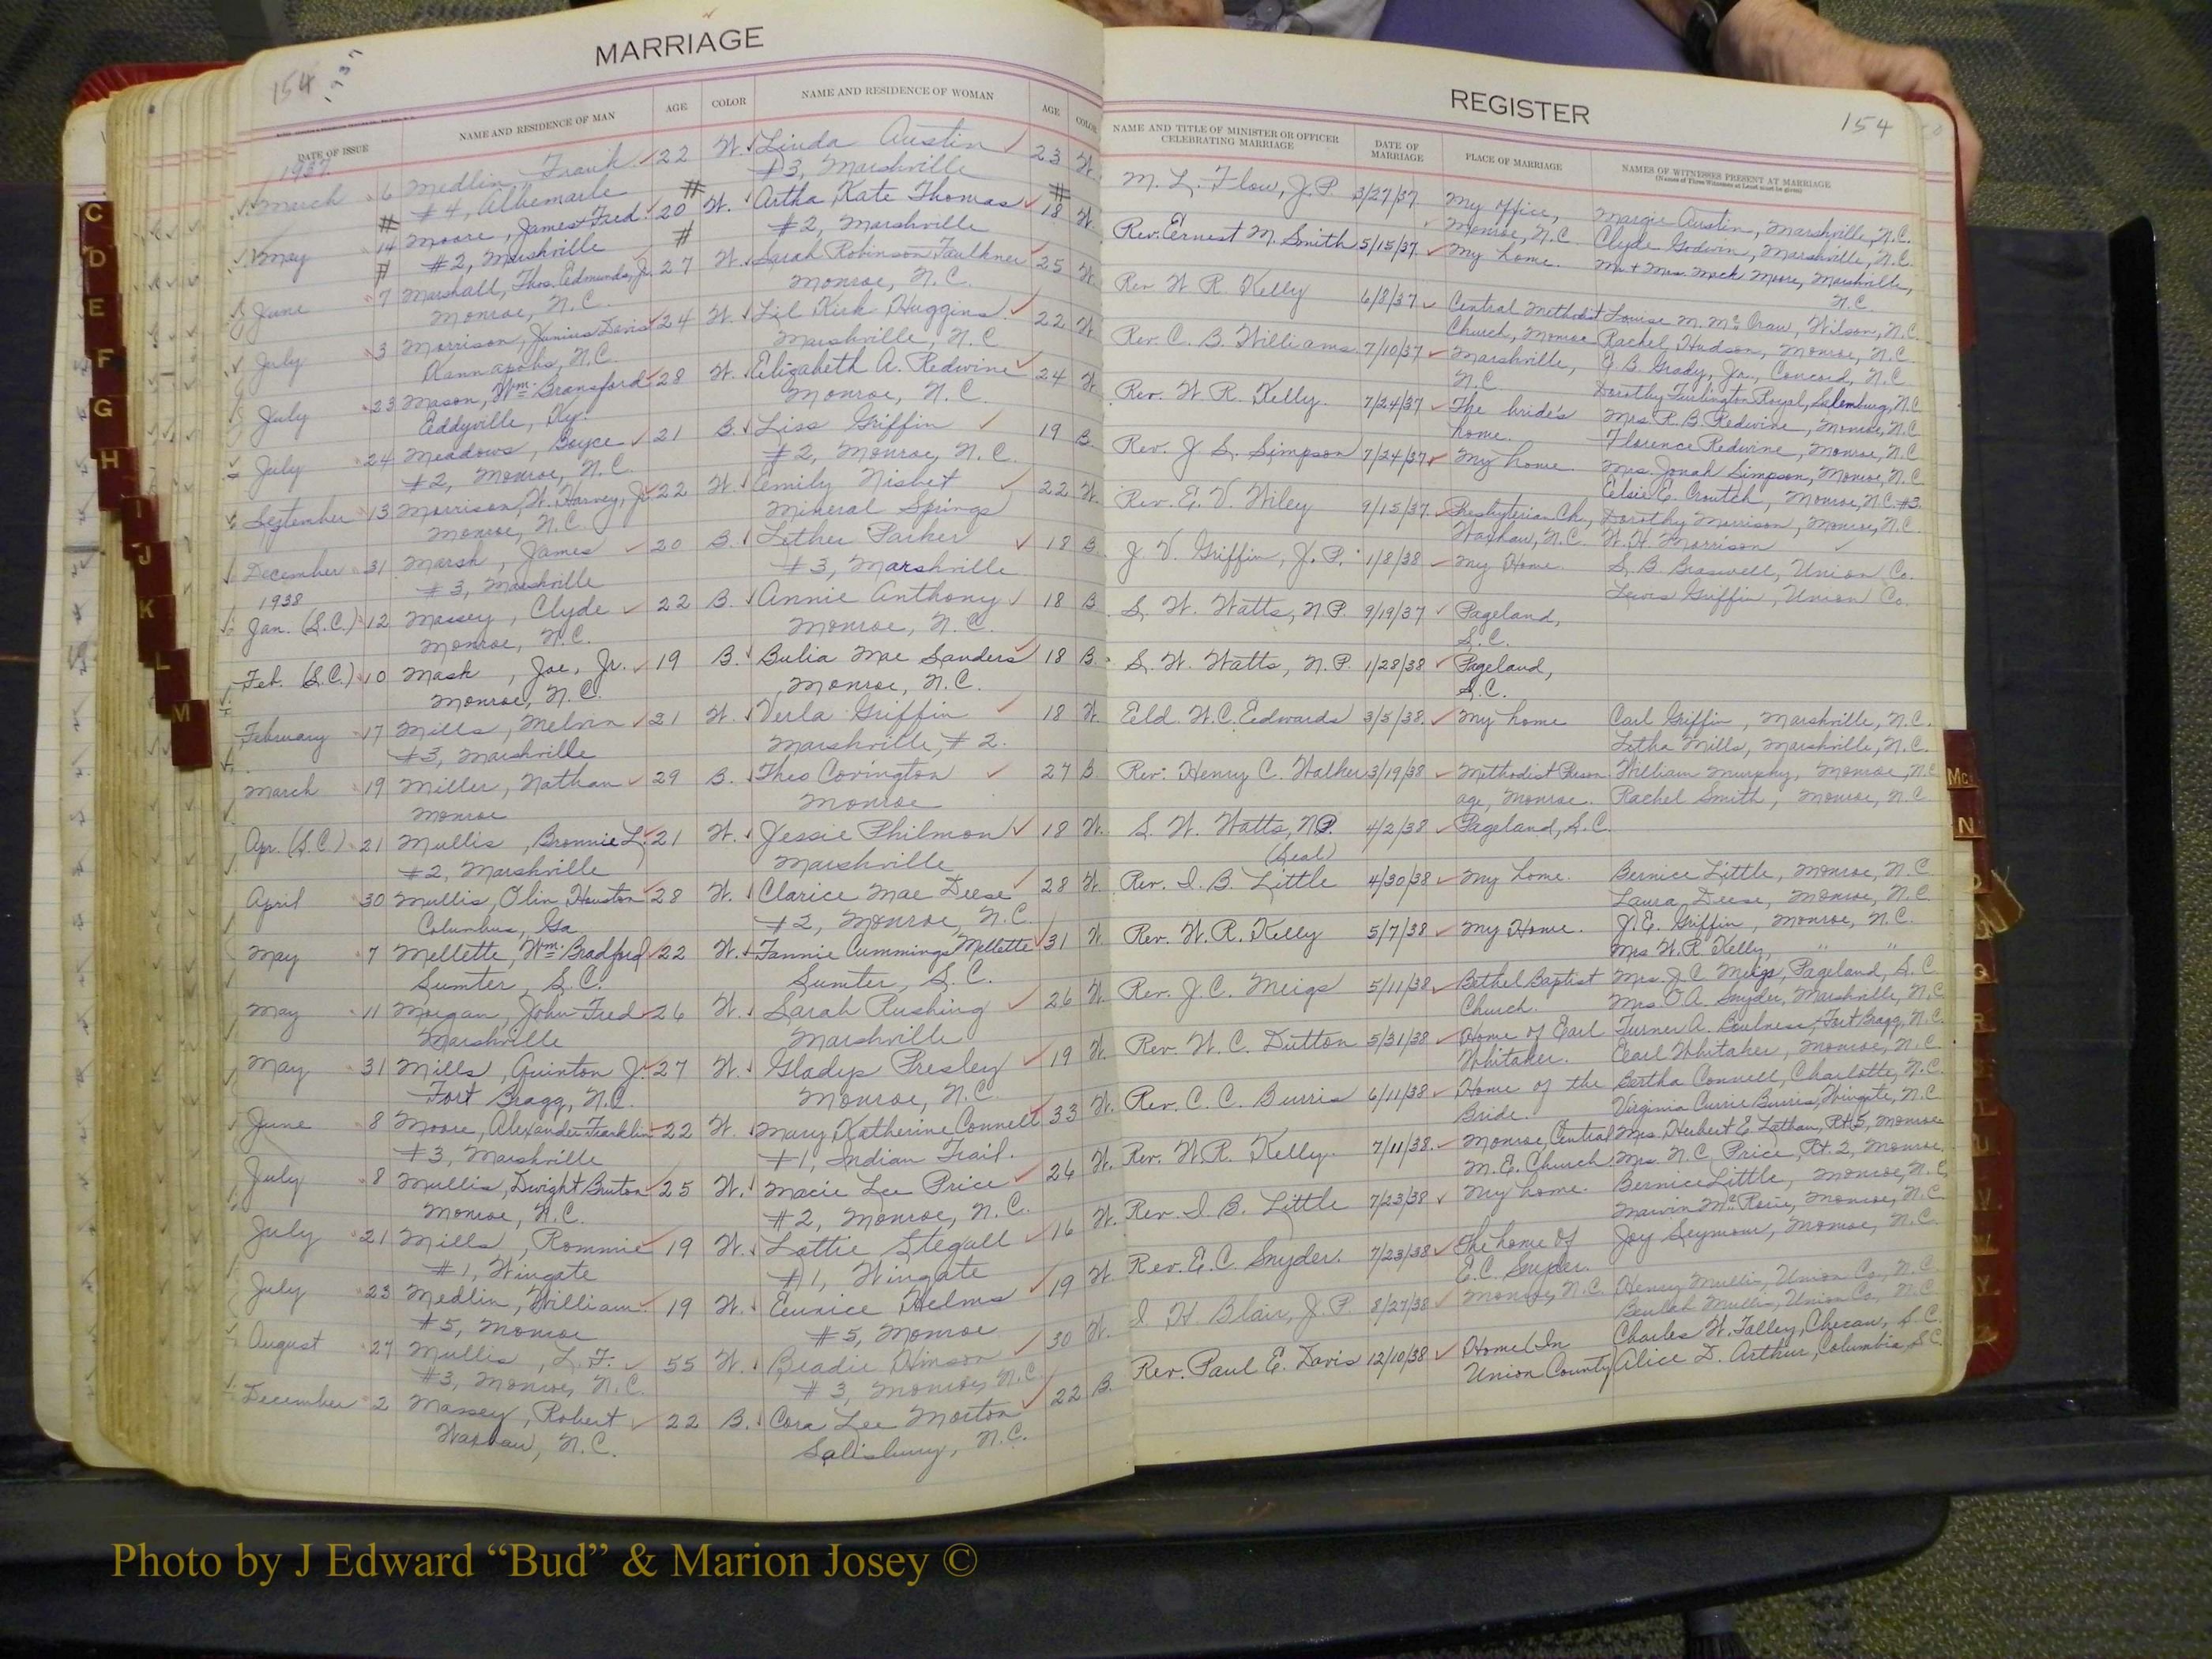 154
1937
MARRIAGE
DATE OF ISSUE NAME AND RESIDENCE OF MAN AGE COLOR NAME AND RESIDENCE OF WOMAN AGE COLOR
1937
March 6 Medlin, Frank 22 W. Linda Austin 23 W.
#4, Albemarle #3, Marshville
May 14 Moore, James Fred 20 W. Artha Kate Thomas 18 W.
#2, Marshville #2, Marshville
June 7 Marshall, Thos. Edmunds, Jr. 27 W. Sarah Robinson Faulkner 25 W.
Monroe, N.C. Monroe, N.C.
July 3 Morrison, Junius Davis 24 W. Lil Kirk Huggins 22 W.
Kannapolis, N.C. Marshville, N.C.
July 23 Mason, Wm. Bransford 28 W. Elizabeth A. Redwine 24 W.
Eddyville, Ky. Monroe, N.C.
July 24 Meadows, Boyce 21 B. Liss Griffin 19 B.
#2, Monroe, N.C. #2, Monroe, N.C.
September 13 Morrison, W. Harvey, Jr. 22 W. Emily Nisbet 22 W.
Monroe, N.C. Mineral Springs
December 31 Marsh, James 20 B. Lether Parker 18 B.
#3, Marshville #3, Marshville
1938
Jan. (S.C.) 12 Massey, Clyde 22 B. Annie Anthony 18 B
Monroe, N.C. Monroe, N.C.
Feb. (S.C.) 10 Mask, Joe, Jr. 19 B. Bulia Mae Sanders 18 B.
Monroe, N.C. Monroe, N.C.
February 17 Mills, Melvin 21 W. Verla Griffin 18 W
#3, Marshville Marshville, #2.
March 19 Miller, Nathan 29 B. Theo Covington 27 B
Monroe Monroe
Apr. (S.C.) 21 Mullis, Bronnie L. 21 W. Jessie Philmon 18 W.
#2, Marshville Marshville
April 30 Mullis, Olin Houston 28 W. Clarice Mae Deese 28 W
Columbus, Ga #2, Monroe, N.C.
May 7 Mellette, Wm. Bradford 22 W. Fannie Cummings Mellette 31 W
Sumter, S.C. Sumter, S.C.
May 11 Morgan, John Fred 26 W. Sarah Rushing 26 W
Marshville Marshville
May 31 Mills, Quinton J. 27 W. Gladys Presley 19 W
Fort Bragg, N.C. Monroe, N.C.
June 8 Moore, Alexander Franklin 22 W. Mary Katherine Connell 33 W.
#3, Marshville #1, Indian Trail.
July 8 Mullis, Dwight Bruton 25 W. Macie Lee Price 26 W.
Monroe, N.C. #2, Monroe, N.C.
July 21 Mills, Rommie 19 W. Lottie Stegall 16 W.
#1, Wingate #1, Wingate
July 23 Medlin, William 19 W. Eunice Helms 19 W
#5, Monroe #5, Monroe
August 27 Mullis, L. F. 55 W. Beadie Hinson 30 W.
#3, Monroe, N.C. #3, Monroe, N.C.
December 2 Massey, Robert 22 B. Cora Lee Morton 22 B.
Waxhaw, N.C. Salisbury, N.C.
REGISTER
154
NAME AND TITLE OF MINISTER OR OFFICER CELEBRATING MARRIAGE DATE OF MARRIAGE PLACE OF MARRIAGE NAMES OF WITNESSES PRESENT AT MARRIAGE
(Names of Three Witnesses at Least must be given)
M. L. Flow, J.P. 3/27/37 My office, Margie Austin, Marshville, N.C.
Monroe, N.C. Clyde Godwin, Marshville, N.C.
Rev. Ernest M. Smith 5/15/37 My home. Mr + Mrs. Mack Moore, Marshville, N.C.
Rev W R. Kelly 6/8/37 Central Methodist Louise M. McCraw, Wilson, N.C.
Church, Monroe Rachel Hudson, Monroe, N.C
Rev. C. B. Williams 7/10/37 Marshville, E. B. Grady, Jr., Concord, N.C
N.C. Dorothy Turlington Royal, Salemburg, N.C
Rev. W R. Kelly. 7/24/37 The bride's Mrs R. B. Redwine, Monroe, N.C
home. Florence Redwine, Monroe, N.C
Rev. J S. Simpson 7/24/37 My home. Mrs. Jonah Simpson, Monroe, N.C
Elsie E. Croutch, Monroe, N.C. #3.
Rev. E. V. Wiley 9/15/37 Presbyterian Ch., Dorothy Morrison, Monroe, N.C.
Waxhaw, N.C. W. H. Morrison
J V. Griffin, J. P. 1/8/38 My Home. S. B. Braswell, Union Co.
Lewis Griffin, Union Co
S. W. Watts, N.P. 9/19/37 Pageland,
S.C.
S. W. Watts, N.P. 1/28/38 Pageland,
S.C.
Eld. W.C. Edwards 3/5/38 My home Carl Griffin, Marshville, N.C.
Letha Mills, Marshville, N.C.
Rev. Henry C. Walker 3/19/38 Methodist Parson William Murphy, Monroe, N.C
age, Monroe. Rachel Smith, Monroe, N.C
S. W. Watts, N.P. 4/2/38 Pageland, S.C.
(Seal)
Rev. I. B. Little 4/30/38 My home. Bernice Little, Monroe, N.C
Laura Deese, Monroe, N.C
Rev. W. R. Kelly 5/7/38 My Home. J. E. Griffin, Monroe, N.C.
Mrs W. R Kelly, " "
Rev. J. C. Meigs 5/11/38 Bethel Baptist Mrs. J. C. Meigs, Pageland, S.C
Church. Mrs. O A. Snyder, Marshville, N.C
Rev. W. C. Dutton 5/31/38 Home of Earl Turner A. Fort Bragg, N.C.
Whitaker. Earl Whitaker, Monroe, N.C.
Rev. C. C. Burris 6/11/38 Home of the Bertha Connell, Charlotte, N.C.
Bride. Virginia Currie Burris, Wingate, N.C
Rev. W. R. Kelly. 7/11/38. Monroe, Central Mrs. Herbert E. Lathan, Rt 5, Monroe
M.E. Church Mrs. N. C. Price, Rt. 2, Monroe
Rev. I. B. Little 7/23/38 My home. Bernice Little, Monroe, N.C
Marvin McRorie, Monroe, N.C
Rev. E. C. Snyder. 7/23/38 The home of Joy Seymour, Monroe, N.C.
E.C. Snyder.
I H Blair, J. P. 8/27/38 Monroe, N.C. Henry Mullis, Union Co., N.C.
Beulah Mullis, Union Co., N.C
Rev. Paul E. Davis 12/10/38 Home (In Charles W. Talley, Cheraw, S.C.
Union County) Alice D. Arthur, Columbia, S.C.
C
D
E
F
G
H
I
J
K
L
M
Mc
N
Q
R
U
V
W
Y
Photo by J Edward “Bud” & Marion Josey ©